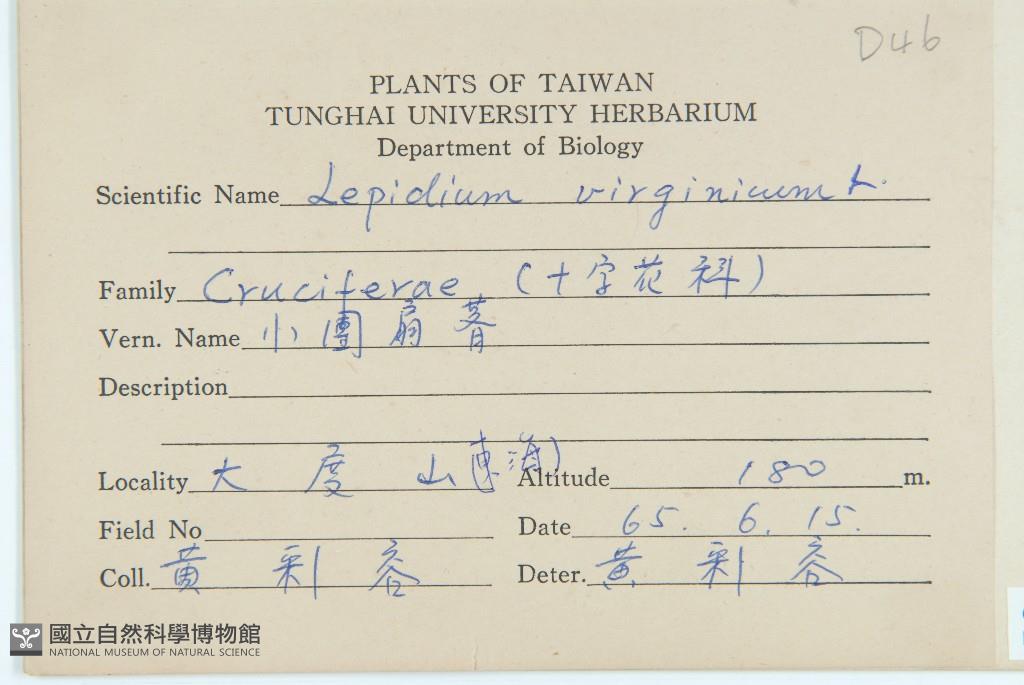 D46
PLANTS OF TAIWAN
TUNGHAI UNIVERSITY HERBARIUM
Department of Biology
Scientific Name Lepidium virginicum L.
Family Cruciferae (十字花科)
Vern. Name 小團扇薺
Description
Locality 大度山(東海) Altitude 180 m.
Field No Date 65. 6. 15.
Coll. 黃利容 Deter. 黃利容
國立自然科學博物館
NATIONAL MUSEUM OF NATURAL SCIENCE